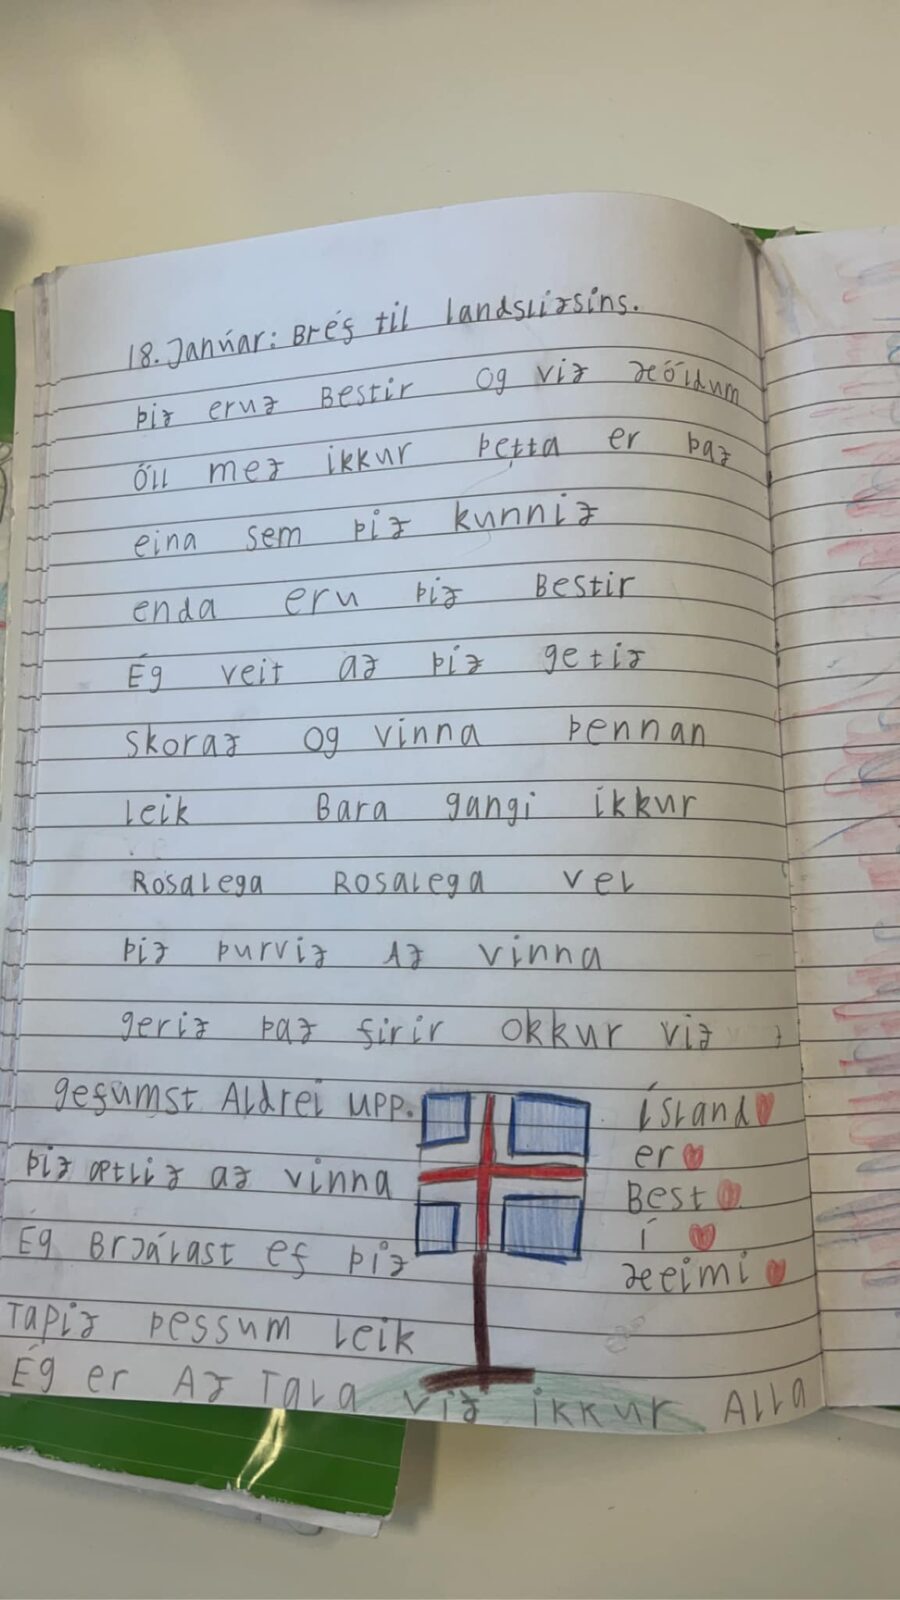 18. Janúar: Bréf til landsliðsins.
Þið eruð Bestir og við höldum
öll með ikkur þetta er það
eina sem þið kunnið
enda eru þið Bestir
Ég veit að þið getið
skorað og vinna þennan
leik Bara gangi ikkur
Rosalega Rosalega vel
Þið þurvið Að vinna
gerið það firir okkur við
gefumst Aldrei upp.
Þið ætlið að vinna
Ég Brjálast ef þið
Tapið þessum leik
Ég er Að Tala við ikkur Alla
Ísland
er
Best
í
heimi